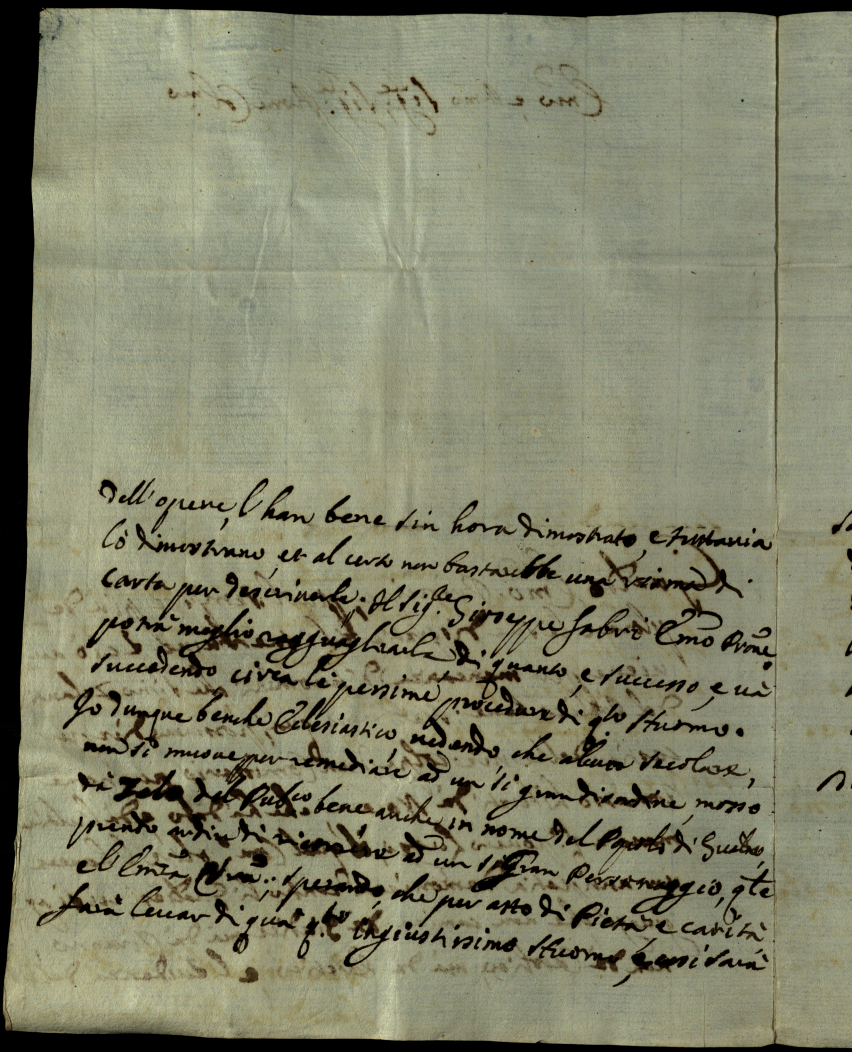 dell'opere, l'han bene sin hora dimostrato, e tuttavia
lo dimostrano, et al certo non bastarebbe una risma di
carta per descriverle. Il Sig.re Giuseppe Fabri Em̃o Prõne
potrà meglio ragguagliarla di quanto, è successo, e và
succedendo circa le pessime procedure di q.to Huomo.
Io dunque benche Eclesiastico, vedendo, che alcun secolare,
non si muove per remediare ad un sì grandisordine, mosso
dà Zelo del Publico bene anche in nome del Popolo di
prendo ardire di ricorrere ad un sì Gran Personaggio, q.le
è l'Em̃za sperando, che per atto di Pietà, e carità
farà levar di quà q.to ingiustissimo Huomo, e così sarà